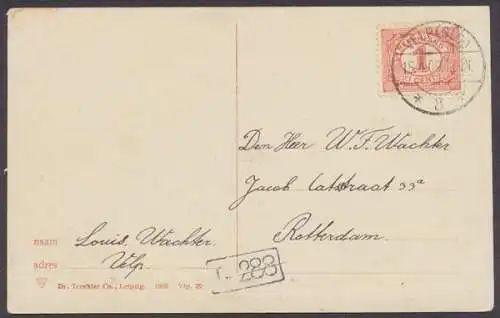 NEDERLAND
1
CENT
* 8 *
Den Heer W.F. Wachter
Jacob Catstraat 33a
Rotterdam.
naam Louis Wachter.
adres Velp.
Dr. Trenkler Co., Leipzig. 1906 Vlp. 29